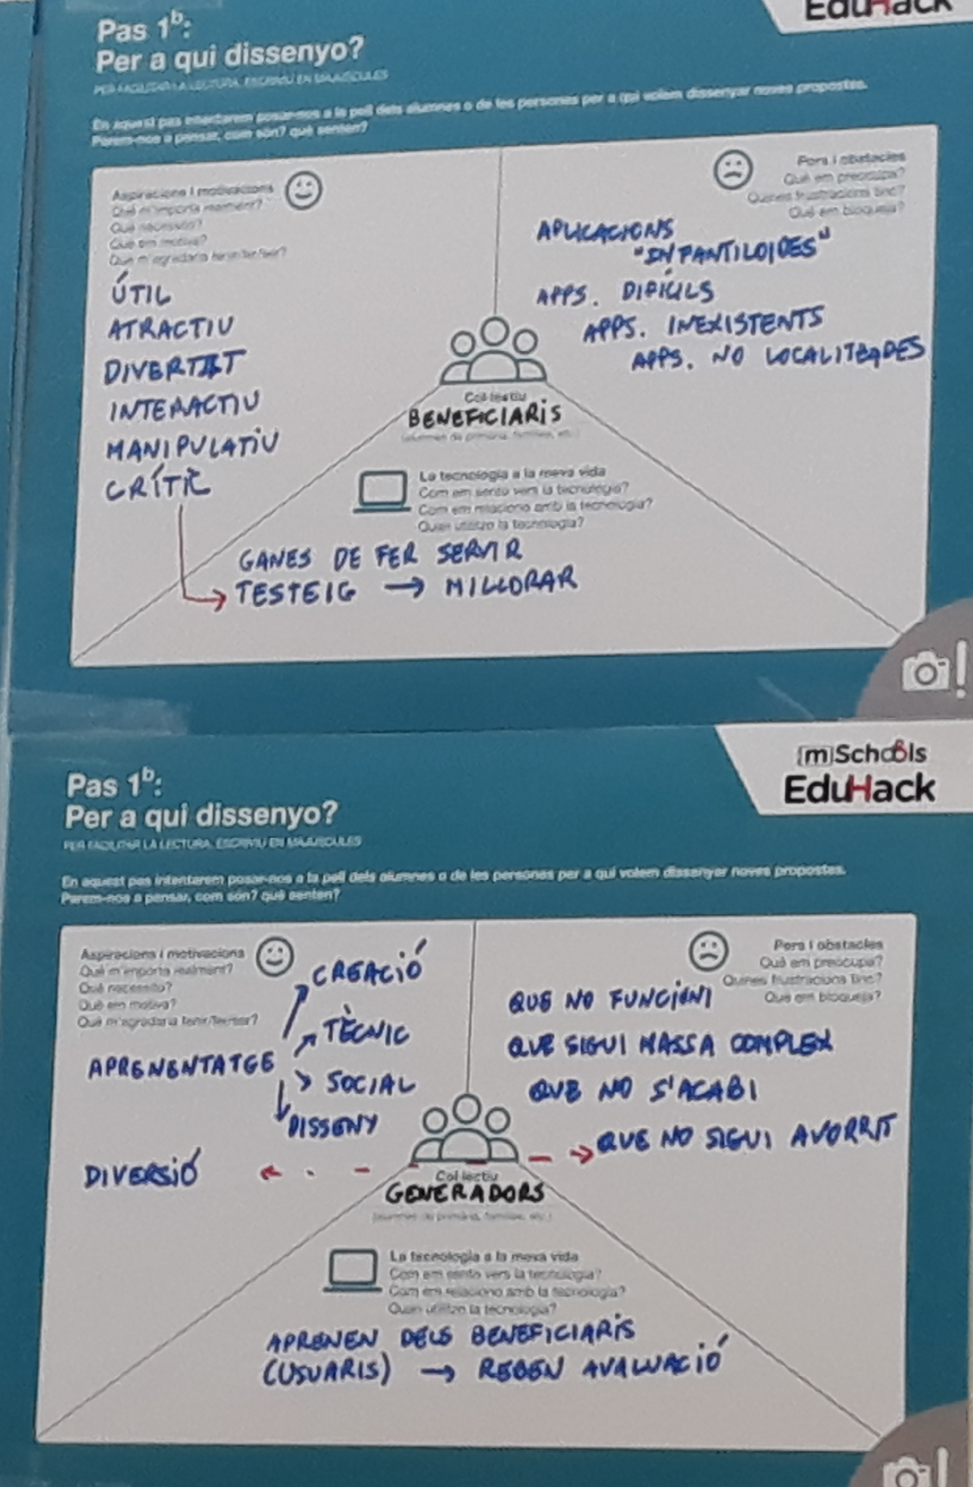 EduHack
Pas 1b:
Per a qui dissenyo?
PER FACILITAR LA LECTURA, ESCRIVIU EN MAJÚSCULES
En aquest pas intentarem posar-nos a la pell dels alumnes o de les persones per a qui volem dissenyar noves propostes.
Parem-nos a pensar, com són? què senten?
Aspiracions i motivacions
Què m'importa realment?
Què necessito?
Què em motiva?
Què m'agradaria tenir/fer/ser?
ÚTIL
ATRACTIU
DIVERTIT
INTERACTIU
MANIPULATIU
CRÍTIC
Pors i obstacles
Què em preocupa?
Quines frustracions tinc?
Què em bloqueja?
APLICACIONS
"INFANTILOIDES"
APPS. DIFÍCILS
APPS. INEXISTENTS
APPS. NO LOCALITZADES
Col·lectiu
BENEFICIARIS
(alumnes de primària, famílies, etc.)
La tecnologia a la meva vida
Com em sento vers la tecnologia?
Com em relaciono amb la tecnologia?
Quan utilitzo la tecnologia?
GANES DE FER SERVIR
TESTEIG → MILLORAR
[m]Schools
EduHack
Pas 1b:
Per a qui dissenyo?
PER FACILITAR LA LECTURA, ESCRIVIU EN MAJÚSCULES
En aquest pas intentarem posar-nos a la pell dels alumnes o de les persones per a qui volem dissenyar noves propostes.
Parem-nos a pensar, com són? què senten?
Aspiracions i motivacions
Què m'importa realment?
Què necessito?
Què em motiva?
Què m'agradaria tenir/fer/ser?
CREACIÓ
TÈCNIC
APRENENTATGE
SOCIAL
DISSENY
DIVERSIÓ
Pors i obstacles
Què em preocupa?
Quines frustracions tinc?
Què em bloqueja?
QUE NO FUNCIONI
QUE SIGUI MASSA COMPLEX
QUE NO S'ACABI
QUE NO SIGUI AVORRIT
Col·lectiu
GENERADORS
(alumnes de primària, famílies, etc.)
La tecnologia a la meva vida
Com em sento vers la tecnologia?
Com em relaciono amb la tecnologia?
Quan utilitzo la tecnologia?
APRENEN DELS BENEFICIARIS
(USUARIS) → REBEN AVALUACIÓ